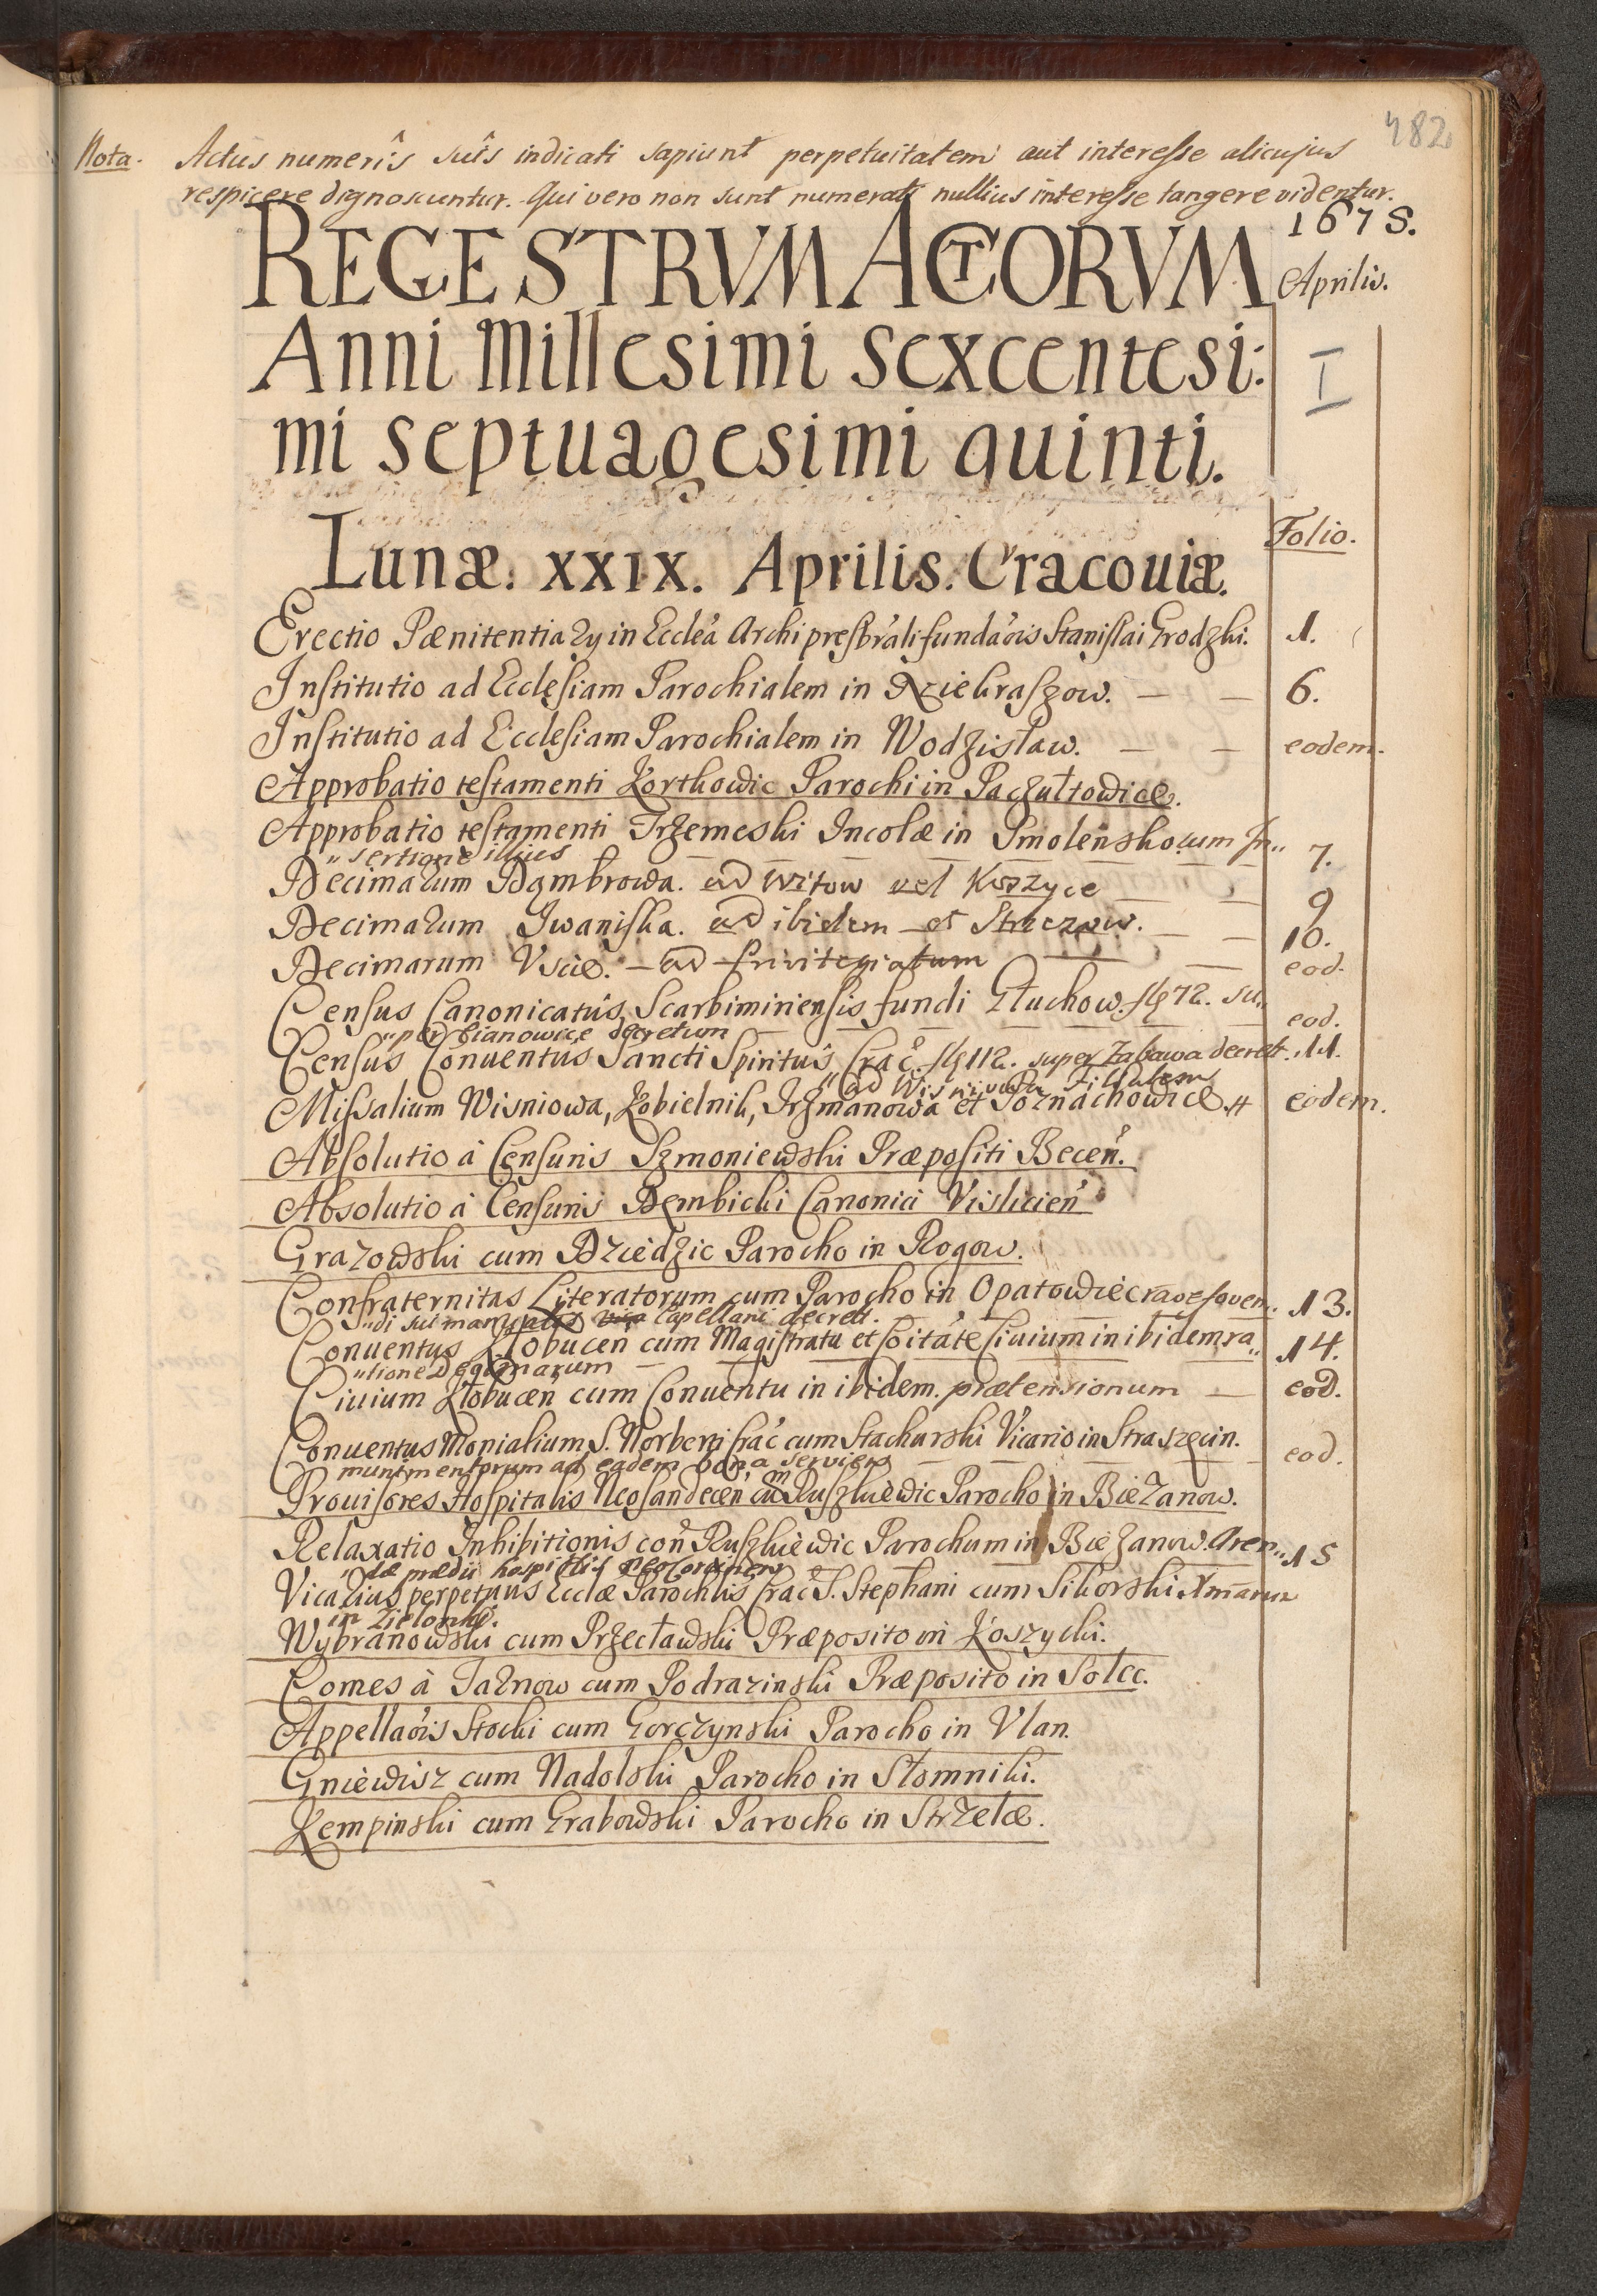 482
Nota. Actus numeris suis indicati sapiunt perpetuitatem aut interesse alicujus
respicere dignoscuntur. Qui vero non sunt numerati nullius interesse tangere videntur.
1675.
REGESTRVM ACTORVM
Aprilis.
Anni Millesimi sexcentesi:
I
mi septuagesimi quinti.
Folio.
Lunæ. XXIX. Aprilis. Cracouiæ.
Erectio Pœnitentiary in Eccleã Archipresbrãli fundaõis Stanislai Grodzki. 1.
Institutio ad Ecclesiam Parochialem in Dziekaszow. — — 6.
Institutio ad Ecclesiam Parochialem in Wodzislaw. — — eodem.
Approbatio testamenti Korthowic Parochi in Paczułtowice.
Approbatio testamenti Trzemeski Incolæ in Smolensko cum In„ 7.
„sertione illius
Decimarum Dąmbrowa. ad Witow vel Koszyce — — 9
Decimarum Iwaniska. ad ibidem et Strzczow. — — 10.
Decimarum Vscie. — ad Privilegiatum — — eod.
Census Canonicatus Scarbimiriensis fundi Głuchow. 72. su„ eod.
„per Bianowice decretum
Census Conuentus Sancti Spiritus Crac. 112. super Zabawa decret. 11.
„ad Wisniowa Filialem
Missalium Wisniowa, Kobielnik, Irzmanowa et Poznachowice. eodem.
Absolutio à Censuris Szmoniewski Præpositi Beceñ.
Absolutio à Censuris Dembicki Canonici Vislicieñ
Grazowski cum Dziedzic Parocho in Rogow.
Confraternitas Literatorum cum Parocho in Opatowiec raõe souen„ 13.
„di sui mansionarii Capellani decret.
Conuentus Kłobucen cum Magistratu et Coitate Ciuium in ibidem ra„ 14.
„tione Decimarum
Ciuium Kłobucen cum Conuentu in ibidem. prætensionum — eod.
Conuentus Monialium S. Norberti Crac cum Stachurski Vicario in Straszęcin. eod.
munimentorum ad eadem bona serviens
Prouisores Hospitalis Neosandecen cum Ruszkiewic Parocho in Bieżanow.
Relaxatio Inhibitionis con Ruszkiewic Parochum in Bieżanow. Aren„ 15
„dæ prædii hospitalis
Vicarius perpetuus Ecclæ Parochlis Crac S. Stephani cum Sikorski
in Zielonki.
Wybranowski cum Przecławski Præposito in Koszycki.
Comes à Tarnow cum Podrazinski Præposito in Solec.
Appellaõis Stocki cum Gorczynski Parocho in Vlan.
Gniewisz cum Nadolski Parocho in Słomniki.
Kempinski cum Grabowski Parocho in Strzelce.